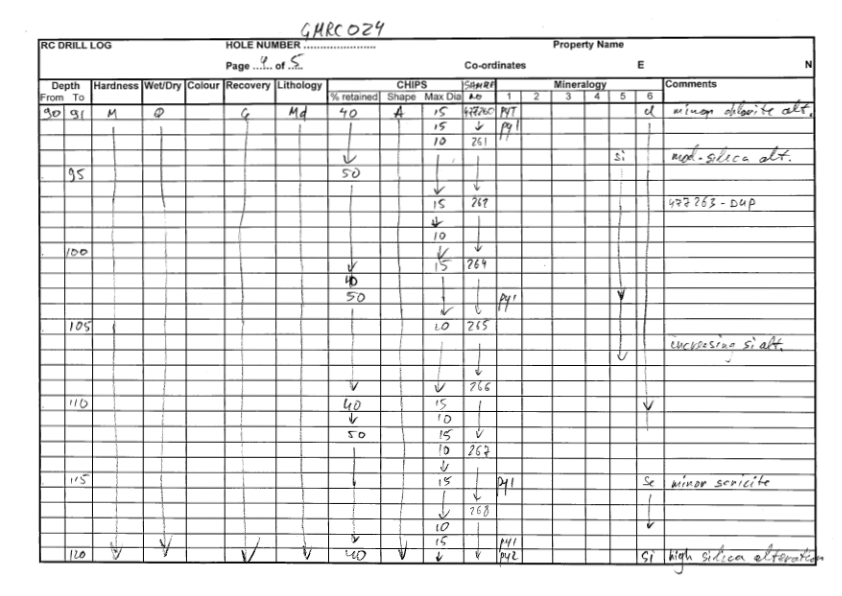 GMRC024
RC DRILL LOG HOLE NUMBER ........................ Property Name
Page ..4.. of .5.. Co-ordinates E N
Depth Hardness Wet/Dry Colour Recovery Lithology CHIPS SAMPLE Mineralogy Comments
From To % retained Shape Max Dia NO 1 2 3 4 5 6
90 91 M D G Md 40 A 15 477260 PYT cl minor chlorite alt.
15 py1
10 261
si mod-silica alt.
95 50
15 262 477263-DUP
10
100
15 264
40
50 py1
105 10 265
increasing si alt.
266
110 40 15
10
50 15
10 267
115 15 py1 Se minor sericite
268
10
15 py1
120 40 py2 Si high silica alteration